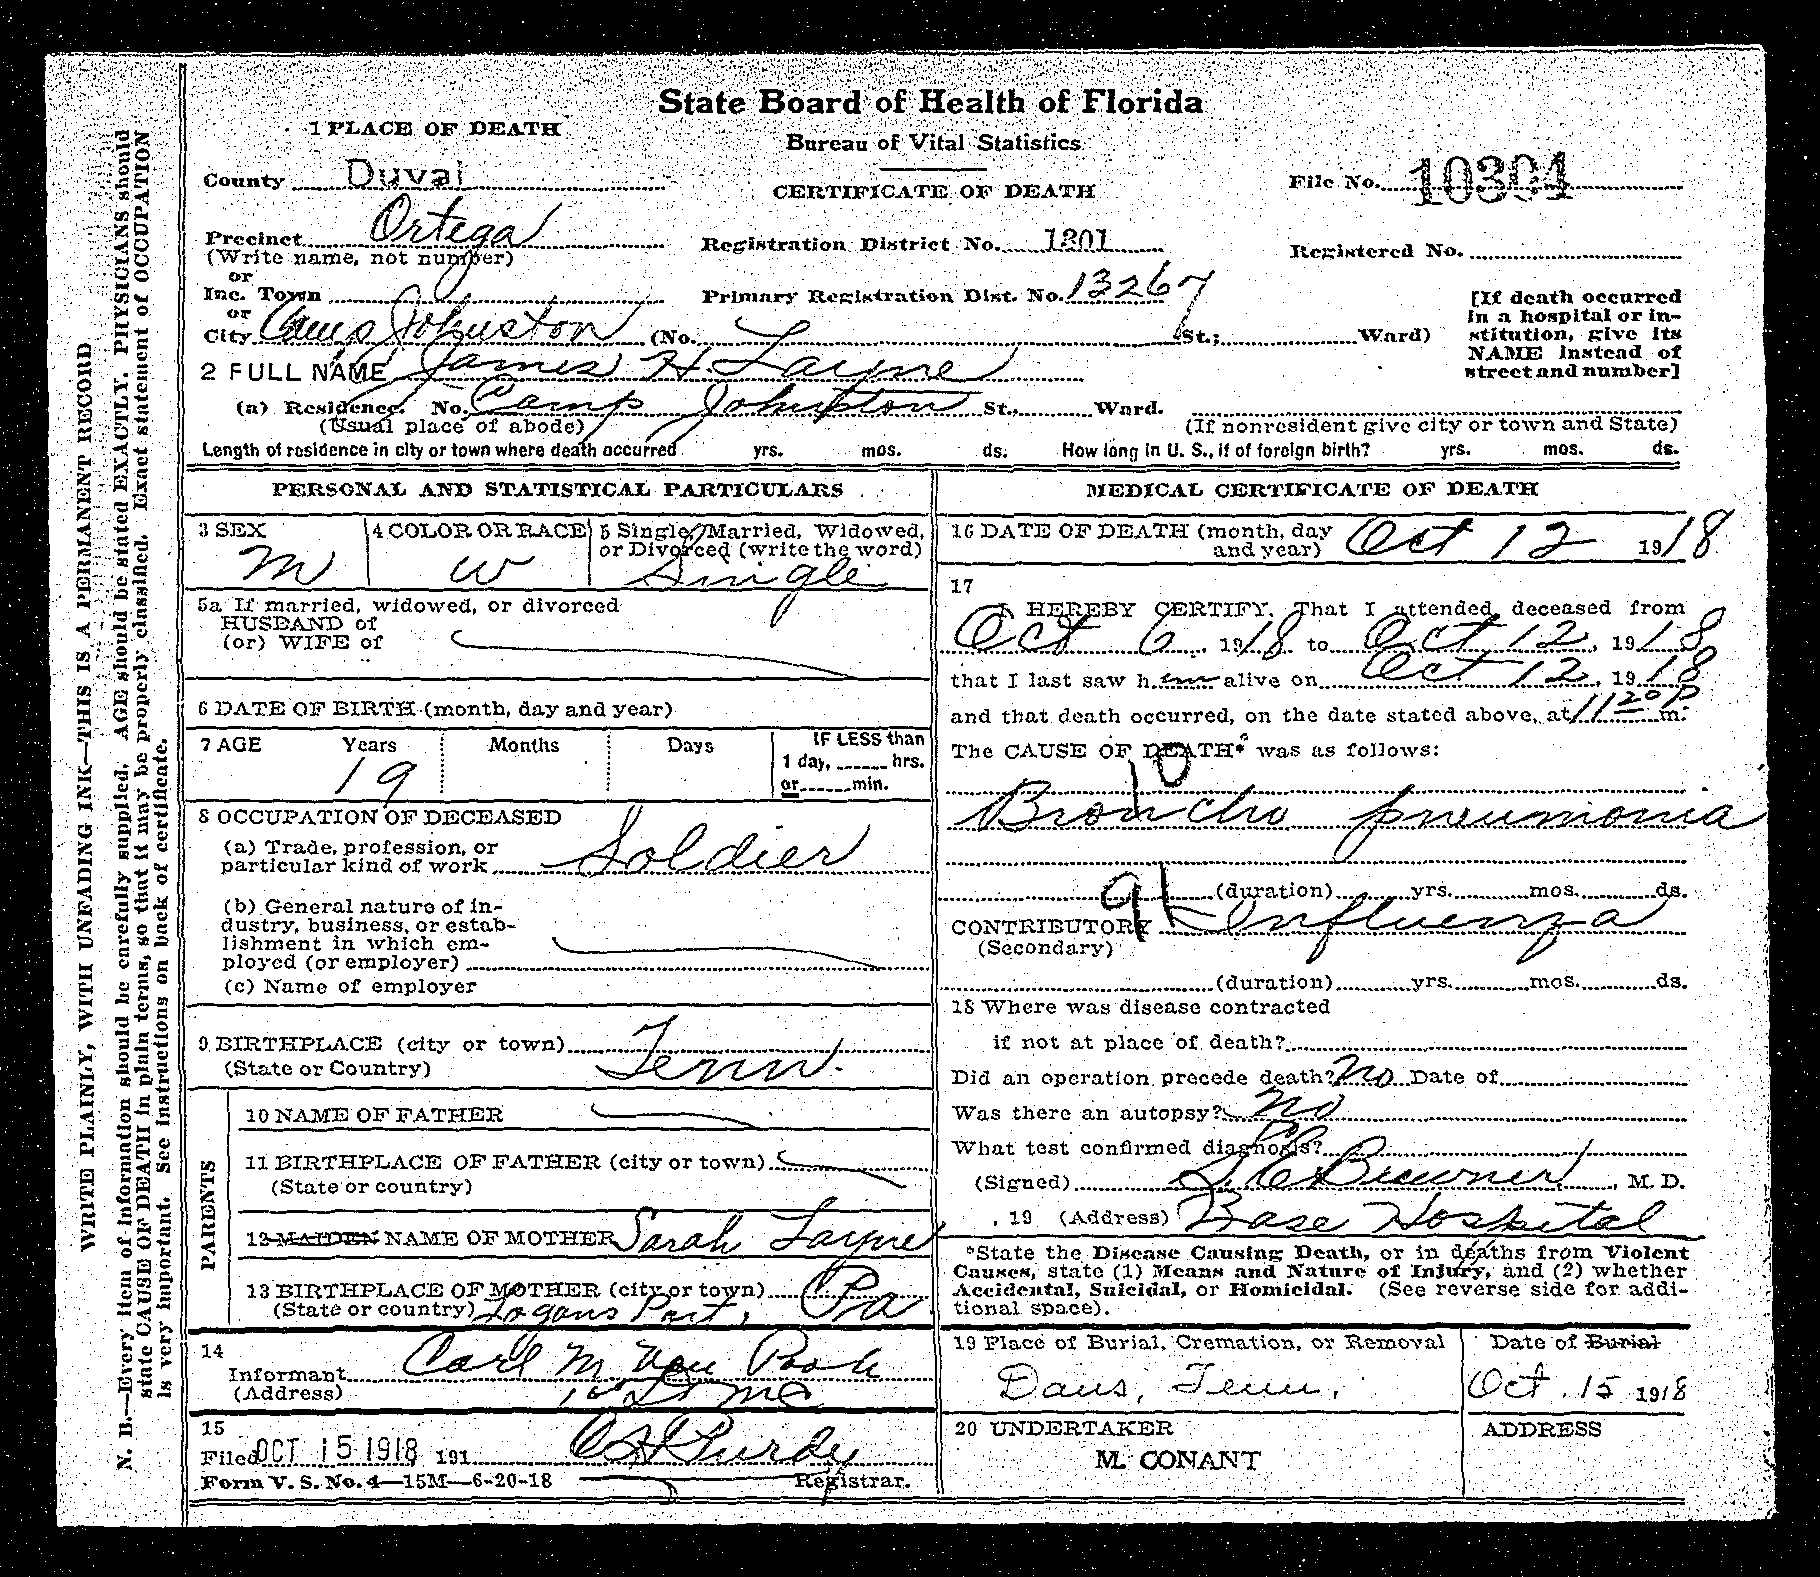 State Board of Health of Florida
Bureau of Vital Statistics
CERTIFICATE OF DEATH
1 PLACE OF DEATH
County Duval
File No. 10304
Precinct Ortega
(Write name, not number)
Registration District No. 1201
Registered No.
or
Inc. Town
Primary Registration Dist. No. 13267
or
City Camp Johnston (No. St.; Ward)
[If death occurred
in a hospital or in-
stitution, give its
NAME instead of
street and number]
2 FULL NAME James H. Layne
(a) Residence. No. Camp Johnston St., Ward.
(Usual place of abode)
(If nonresident give city or town and State)
Length of residence in city or town where death occurred yrs. mos. ds. How long in U. S., if of foreign birth? yrs. mos. ds.
PERSONAL AND STATISTICAL PARTICULARS
3 SEX
M
4 COLOR OR RACE
W
5 Single, Married, Widowed,
or Divorced (write the word)
Single
5a If married, widowed, or divorced
HUSBAND of
(or) WIFE of
6 DATE OF BIRTH (month, day and year)
7 AGE Years Months Days
19
IF LESS than
1 day, hrs.
or min.
8 OCCUPATION OF DECEASED
(a) Trade, profession, or
particular kind of work Soldier
(b) General nature of in-
dustry, business, or estab-
lishment in which em-
ployed (or employer)
(c) Name of employer
9 BIRTHPLACE (city or town) Tenn.
(State or Country)
PARENTS
10 NAME OF FATHER
11 BIRTHPLACE OF FATHER (city or town)
(State or country)
12 MAIDEN NAME OF MOTHER Sarah Layne
13 BIRTHPLACE OF MOTHER (city or town)
(State or country) Logans Port, Pa
14
Informant Carl M Van
(Address) 1st Lt MC
15
Filed OCT 15 1918 191
Purdy
Registrar.
Form V. S. No. 4—15M—6-20-18
MEDICAL CERTIFICATE OF DEATH
16 DATE OF DEATH (month, day
and year) Oct 12 1918
17
I HEREBY CERTIFY, That I attended deceased from
Oct 6, 1918 to Oct 12, 1918
that I last saw him alive on Oct 12, 1918
and that death occurred, on the date stated above, at 11 20 P m.
The CAUSE OF DEATH* was as follows:
10
Broncho pneumonia
(duration) yrs. mos. ds.
91
CONTRIBUTORY Influenza
(Secondary)
(duration) yrs. mos. ds.
18 Where was disease contracted
if not at place of death?
Did an operation precede death? No Date of
Was there an autopsy? No
What test confirmed diagnosis?
(Signed) , M. D.
, 19 (Address) Base Hospital
*State the Disease Causing Death, or in deaths from Violent
Causes, state (1) Means and Nature of Injury, and (2) whether
Accidental, Suicidal, or Homicidal. (See reverse side for addi-
tional space).
19 Place of Burial, Cremation, or Removal
Daus, Tenn.
Date of Burial
Oct. 15 1918
20 UNDERTAKER
M. CONANT
ADDRESS
WRITE PLAINLY, WITH UNFADING INK—THIS IS A PERMANENT RECORD
N. B.—Every item of information should be carefully supplied. AGE should be stated EXACTLY. PHYSICIANS should
state CAUSE OF DEATH in plain terms, so that it may be properly classified. Exact statement of OCCUPATION
is very important. See instructions on back of certificate.